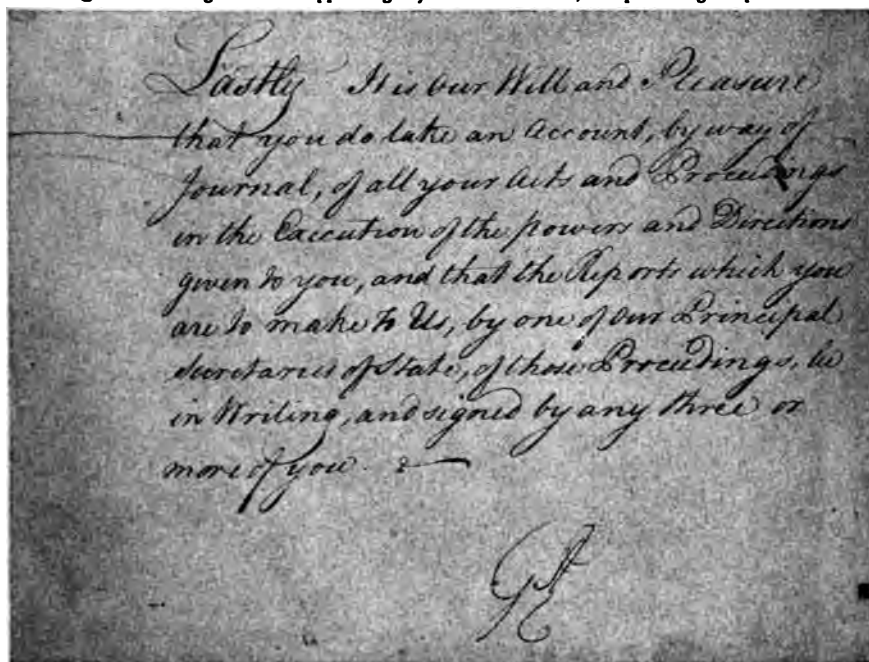 Lastly It is Our Will and Pleasure
that you do take an Account, by way of
Journal, of all your Acts and Proceedings
in the Execution of the powers and Directions
given to you, and that the Reports which you
are to make to Us, by one of Our Principal
Secretaries of State, of those Proceedings, be
in Writing, and signed by any three or
more of you.
GR